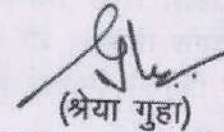 (श्रेया गुहा)